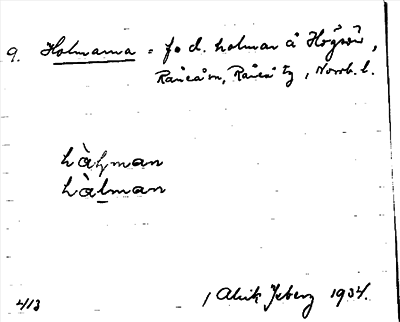 9. Holmarna = f. d. holmar å Högsön,
Råneå sn, Råneå tg, Norrb. l.
hàḷman
hàl̲man
413 / Alrik Isberg 1934.